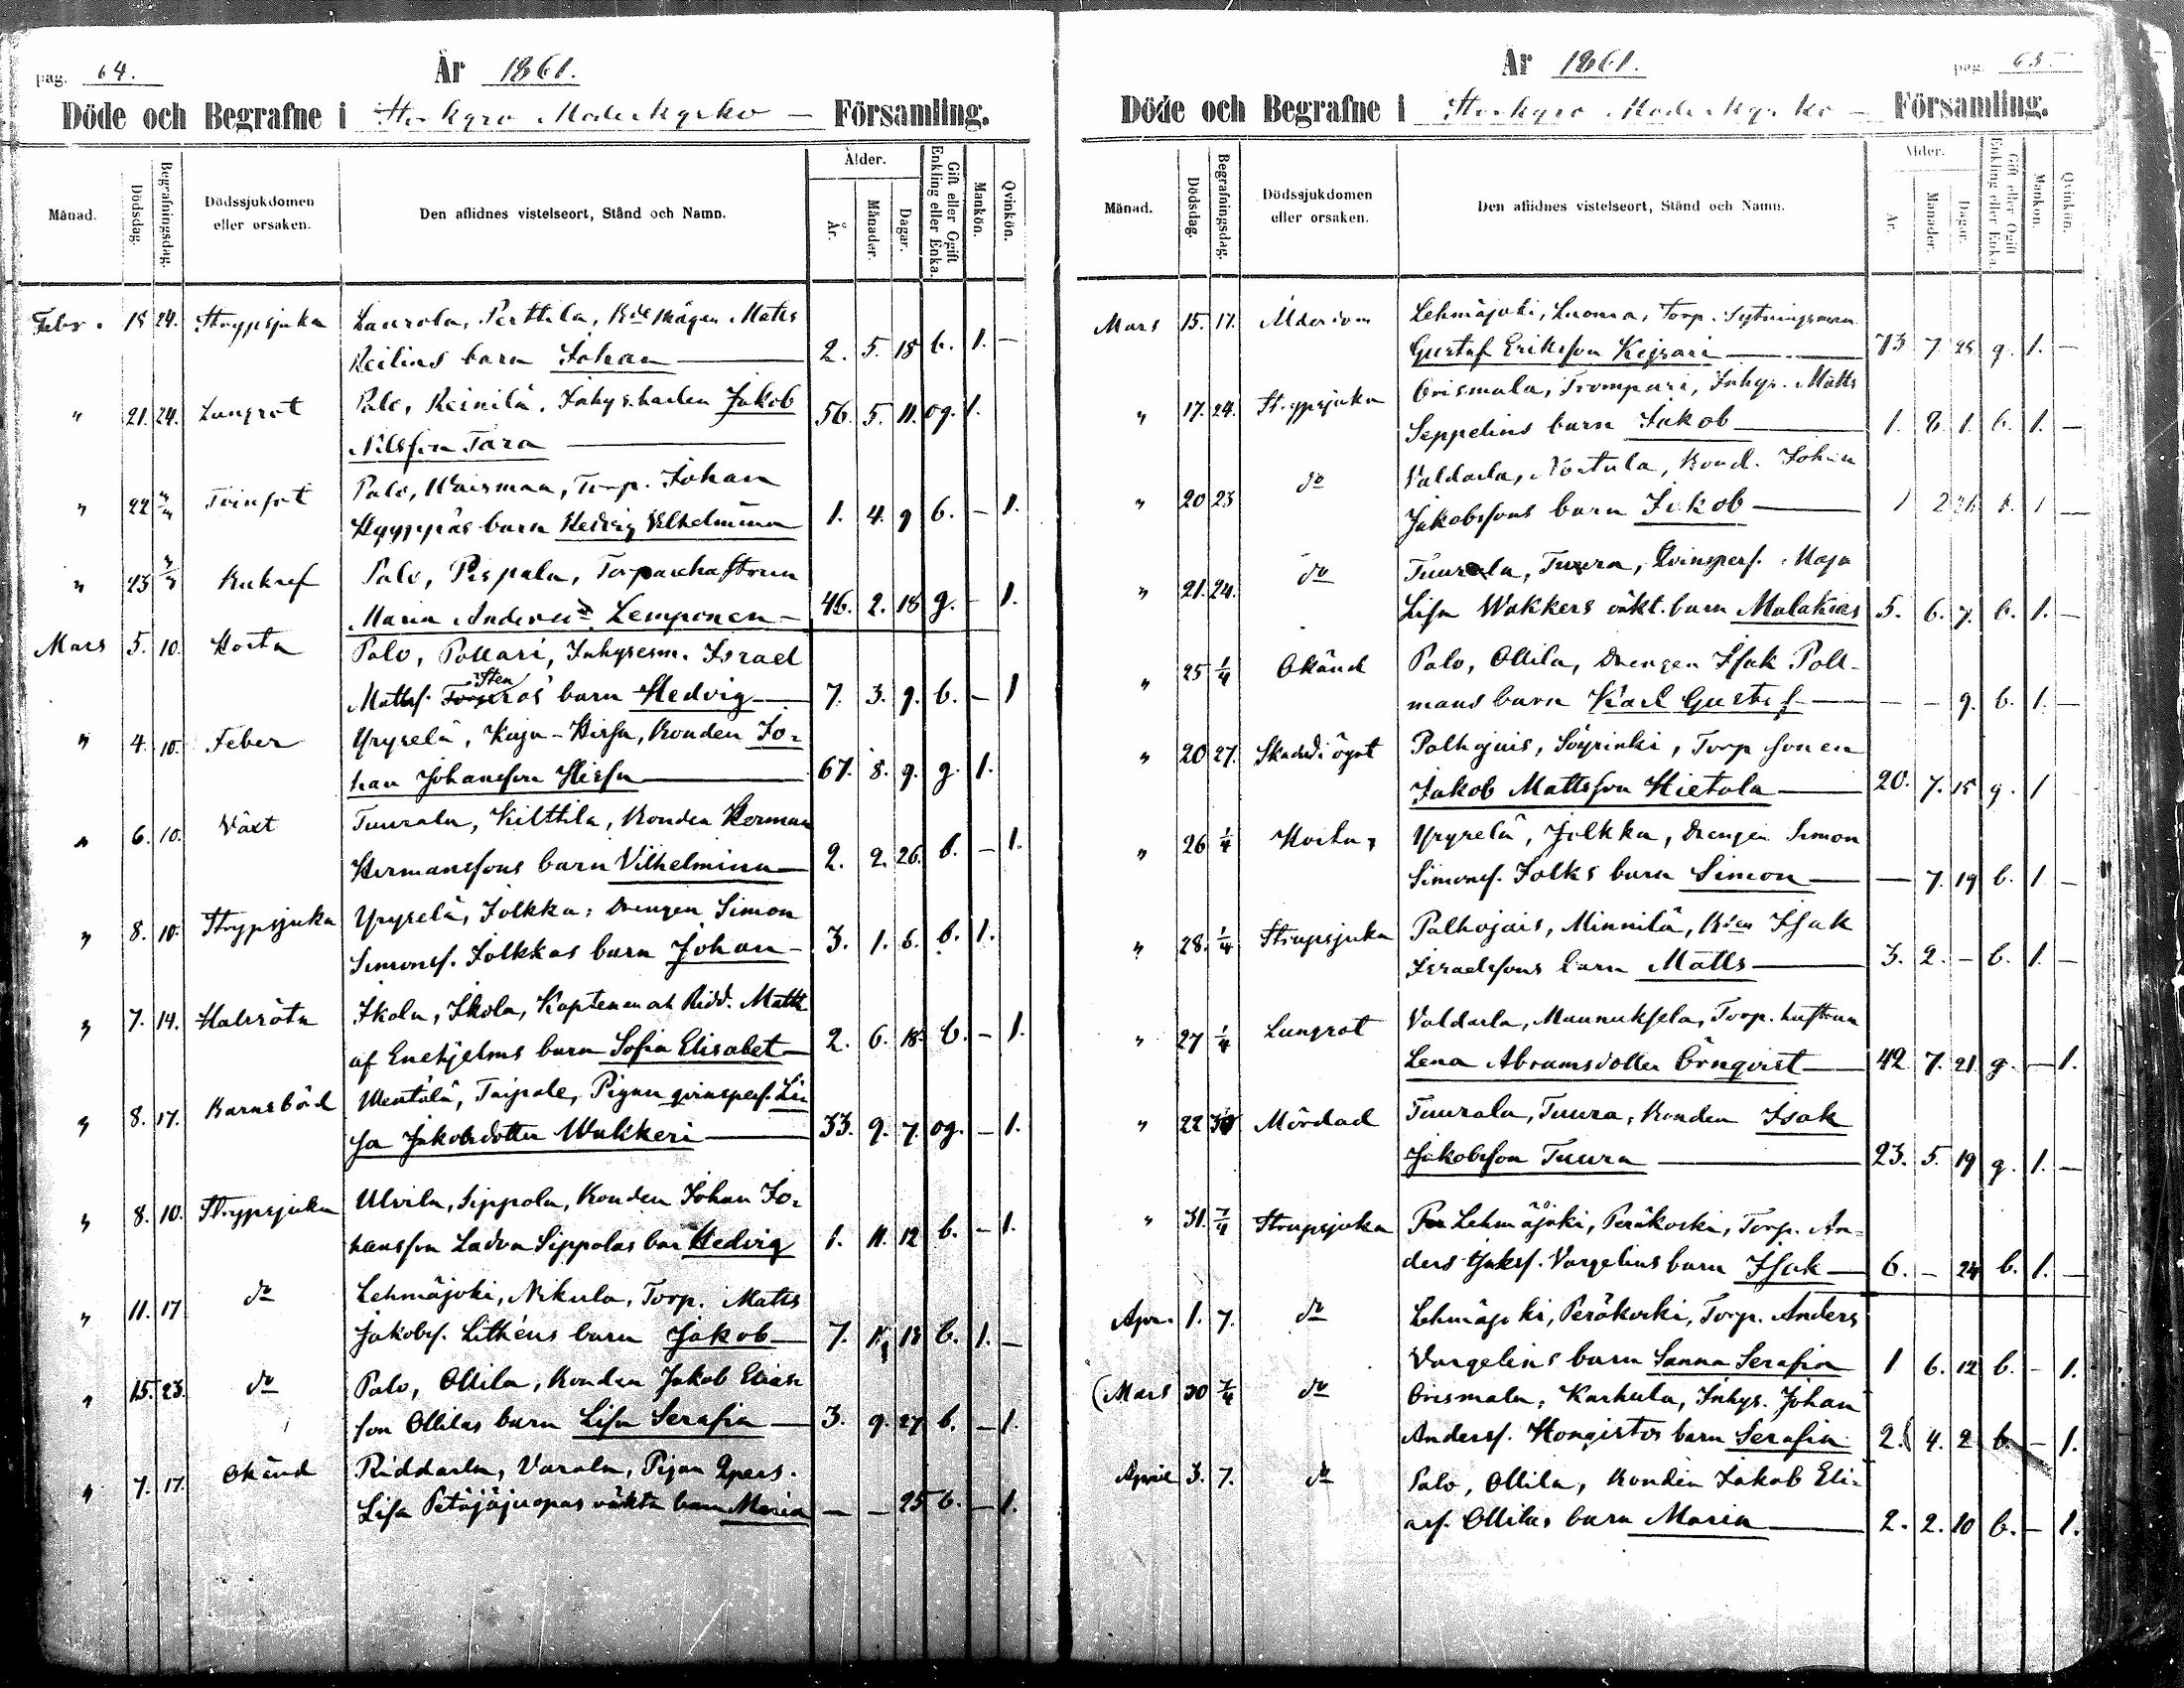 pag. 64.
År 1861.
Döde och Begrafne i Storkyro Moderkyrko - Församling.
Månad.
Dödsdag.
Begrafningsdag.
Dödssjukdomen eller orsaken.
Den aflidnes vistelseort, Stånd och Namn.
Ålder.
År.
Månader.
Dagar.
Gift eller Ogift Enkling eller Enka.
Mankön.
Qvinkön.
Febr. 18 24. Strypsjuka Laurola, Perttila, Bde mågen Matts
Keilins barn Johan 2. 5. 18 b. 1. —
" 21. 24. Lungsot Palo, Reinilä, Inhys.karlen Jakob
Nilsson Tara 56. 5. 11. og. 1.
" 22 Palo, Waisman, Torp. Johan
Hyyppäs barn Hedvig Vilhelmina 1. 4. 9 b. — 1.
" 23 3/3 Palo, Pispala, Torparehustrun
Maria Andersd. Lemponen 46. 2. 18 g. — 1.
Mars 5. 10. Hosta Palo, Pollari, Inhysesm. Israel
Sten
Mattsf. barn Hedvig 7. 3. 9. b. — 1
" 4. 10. Feber Yryselä, Kuja-Hirsu, Bonden Jo-
han Johansson Hirsu 67. 8. 9. g. 1.
" 6. 10. Växt Tuurala, Kilttila, Bonden Herman
Hermanssons barn Vilhelmina 2. 2. 26. b. — 1.
" 8. 10. Strypsjuka Yryselä, Jolkka, Drengen Simon
Simonsf. Jolkkas barn Johan 3. 1. 6. b. 1.
" 7. 14. Halsröta Ikola, Ikola, Kaptenen och Ridd. Matts
af Enehjelms barn Sofia Elisabet 2. 6. 18 b. — 1.
" 8. 17. Barnsbörd Wentälä, Taipale, Pigan qvinspers. Li-
sa Jakobsdotter Wakkeri 33. 9. 7. og. — 1.
" 8. 10. Strypsjuka Ulvila, Sippola, Bonden Johan Jo-
hansson Ladva Sippolas bar Hedvig 1. 11. 12 b. — 1.
" 11. 17 do Lehmäjoki, Nikula, Torp. Matts
Jakobsf. Lithéns barn Jakob 7. 11 13 b. 1. —
" 15. 23. do Palo, Ollila, Bonden Jakob Elias-
son Ollilas barn Lisa Serafia 3. 9. 27 b. — 1.
" 7. 17. Okänd Riddarla, Varala, Pigan Qpers.
Lisa Petäjäjuopas oäkta barn Maria — — 25 b. — 1.
År 1861.
pag. 65.
Döde och Begrafne i Storkyro Moderkyrko - Församling.
Månad.
Dödsdag.
Begrafningsdag.
Dödssjukdomen eller orsaken.
Den aflidnes vistelseort, Stånd och Namn.
Ålder.
År.
Månader.
Dagar.
Gift eller Ogift Enkling eller Enka.
Mankön.
Qvinkön.
Mars 15. 17. Ålderdom Lehmäjoki, Luoma, Torp. Sytningsman
Gustaf Eriksson Kejsari 73 7 25 g. 1. —
" 17. 24. Strypsjuka Orismala, Trompari, Inhys. Matts
Seppelins barn Jakob 1. 8. 1. b. 1. —
" 20 23 do Valdarla, Nortula, Bond. Johan
Jakobssons barn Jakob 1 2 26 b. 1 —
" 21. 24. do Tuurala, Tuura, Qvinspers. Maja
Lisa Wakkers oäkt. barn Malakias 5. 6. 7. b. 1. —
" 25 1/4 Okänd Palo, Ollila, Drengen Isak Poll-
mans barn Karl Gustaf — — 9. b. 1. —
" 20 27. Palhojais, Söyrinki, Torp sonen
Jakob Mattsson Hietala 20. 7. 15 g. 1
" 26 1/4 Hosta Yryselä, Jolkka, Drengen Simon
Simonsf. Jolks barn Simon — 7. 19 b. 1. —
" 28. 1/4 Strupsjuka Palhojais, Minnilä, Bden Isak
Israelssons barn Matts 3. 2. — b. 1. —
" 27 1/4 Lungsot Valdarla, Maunuksela, Torp. hustrun
Lena Abramsdotter Örnqvist 42 7. 21 g. — 1.
" 22 Mördad Tuurala, Tuura, Bonden Isak
Jakobsson Tuura 23. 5. 19 g. 1. —
" 31. 7/4 Strupsjuka Lehmäjoki, Peräkoski, Torp. An-
ders Isaksf. Vargelins barn Isak 6. — 24 b. 1. —
Apr. 1. 7. do Lehmäjoki, Peräkoski, Torp. Anders
Vargelins barn Sanna Serafia 1 6. 12 b. — 1.
(Mars 30 7/4 do Orismala, Karhula, Inhys. Johan
Andersf. Hongistos barn Serafia 2. 4. 2 b. — 1.
April 3. 7. do Palo, Ollila, Bonden Jakob Eli-
asf. Ollilas barn Maria 2. 2. 10 b. — 1.